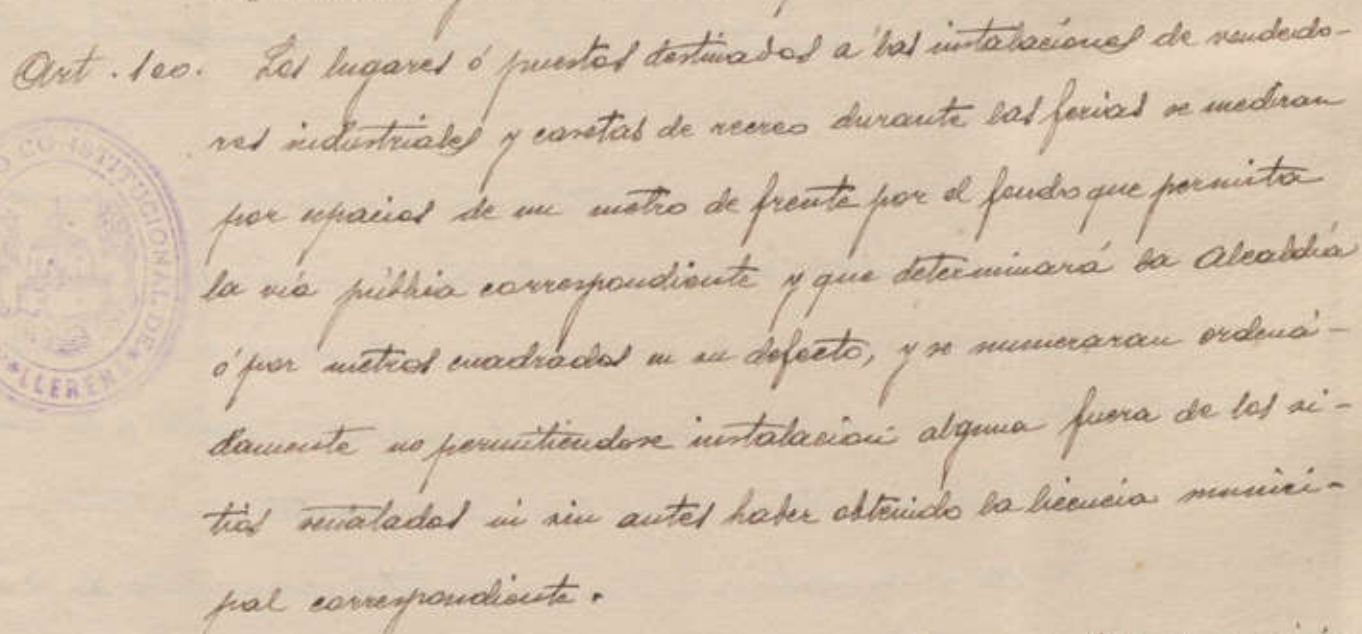 Art. 100. Los lugares ó puestos destinados a las instalaciones de vendedo-
res industriales y casetas de recreo durante las ferias se mediran
por espacios de un metro de frente por el fondo que permita
la via pública correspondiente y que determinará la Alcaldía
ó por metros cuadrados en su defecto, y se numeraran ordena-
damente no permitiendose instalación alguna fuera de los si-
tios señalados ni sin antes haber obtenido la licencia munici-
pal correspondiente.
CONSTITUCIONAL DE
LLERENA